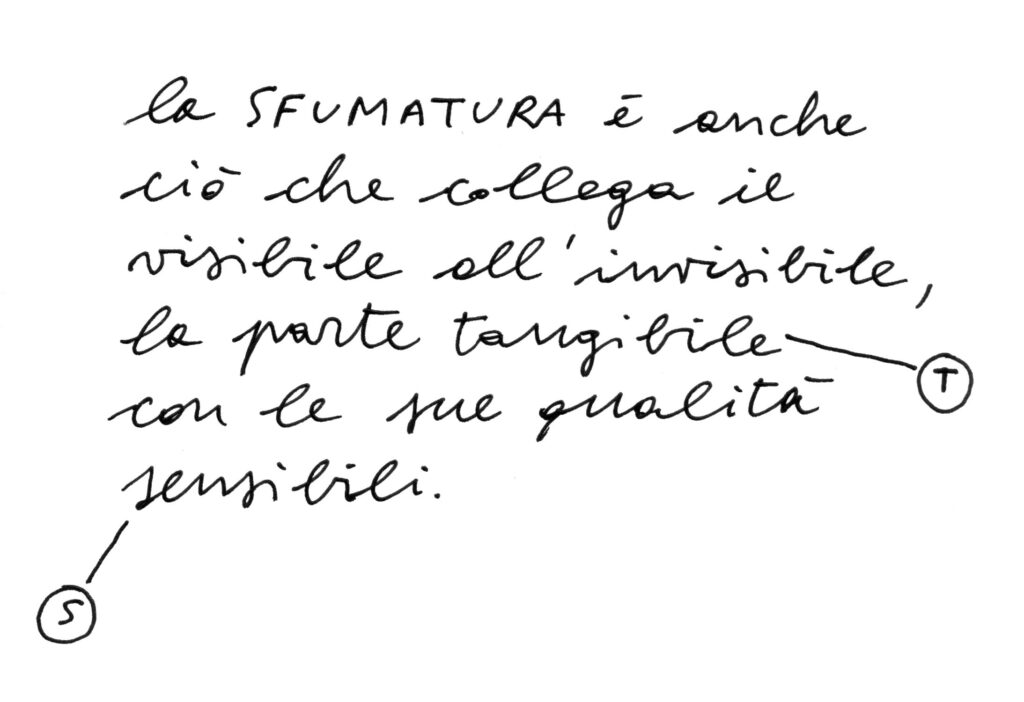 la SFUMATURA è anche
ciò che collega il
visibile all'invisibile,
la parte tangibile
T
con le sue qualità
sensibili.
S